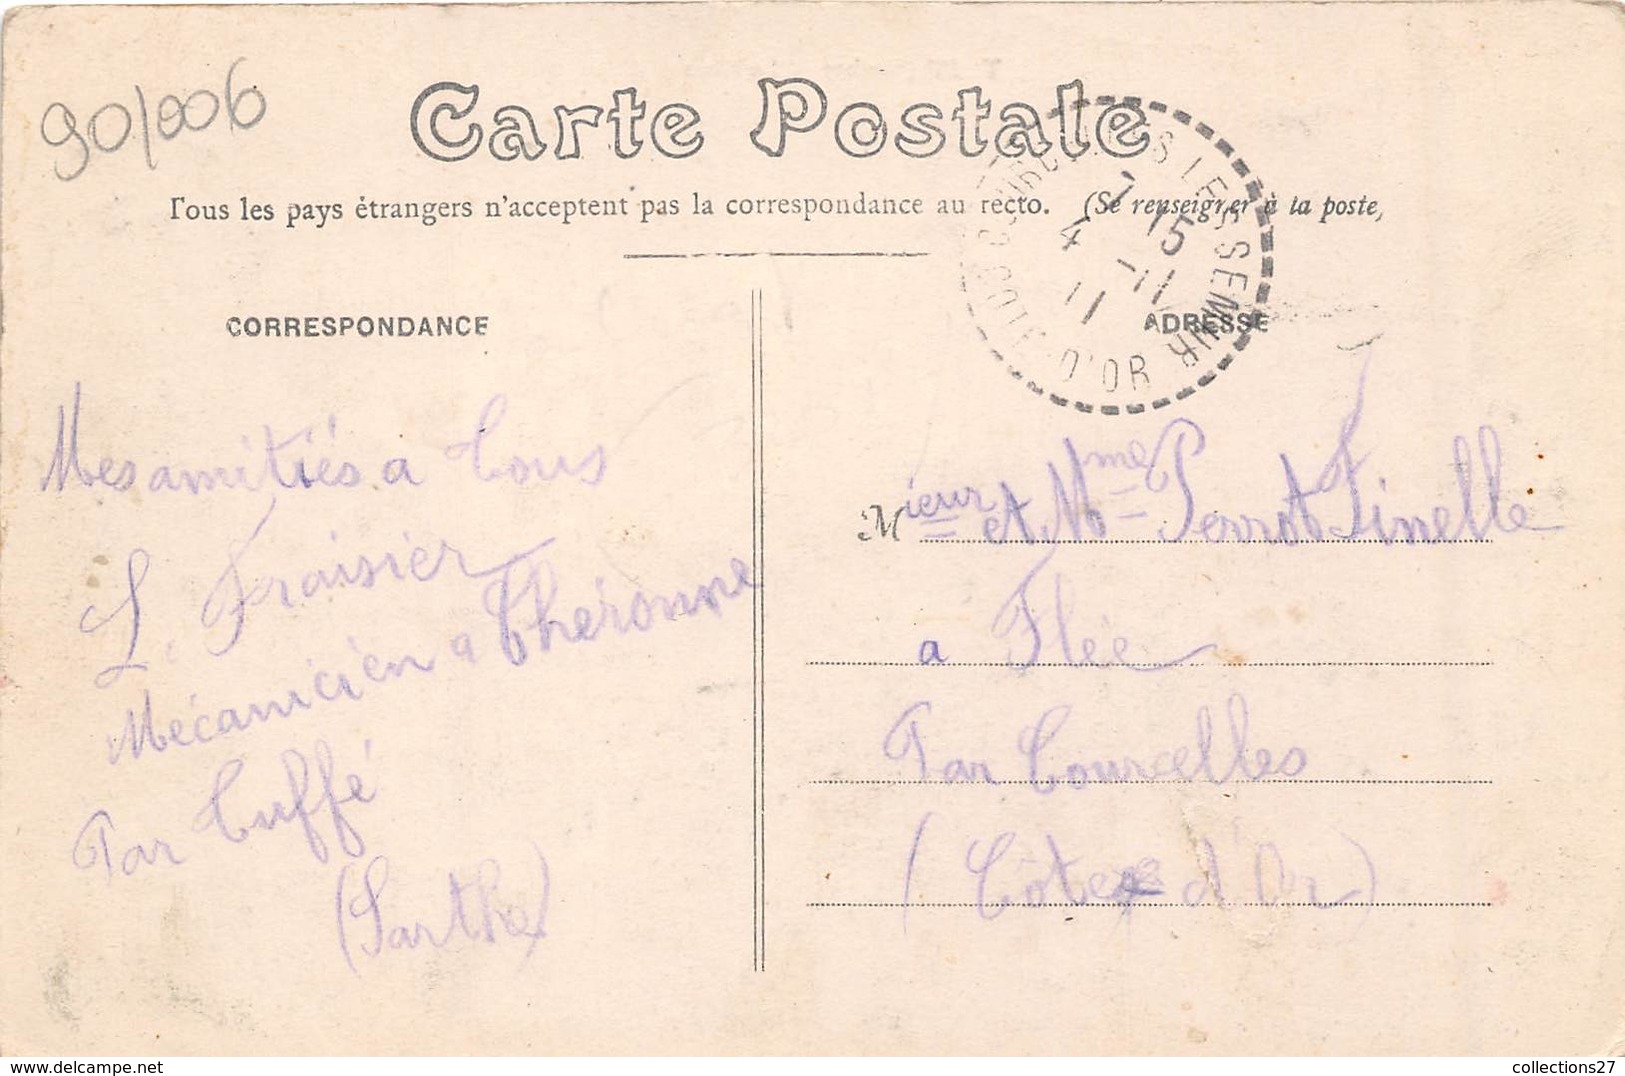 90/006
Carte Postale
Tous les pays étrangers n'acceptent pas la correspondance au recto. (Se renseigner à la poste)
CORRESPONDANCE
Mes amitiés a tous
L. Fraisier
Mécanicien a Théronne
Par Tuffé
(Sarthe)
LES SEMUR
COTE-D'OR
15
4 -11
11
ADRESSE
Mieur et Mme Perrot Finelle
a Flée
Par Courcelles
(Côte d'Or)
collections27